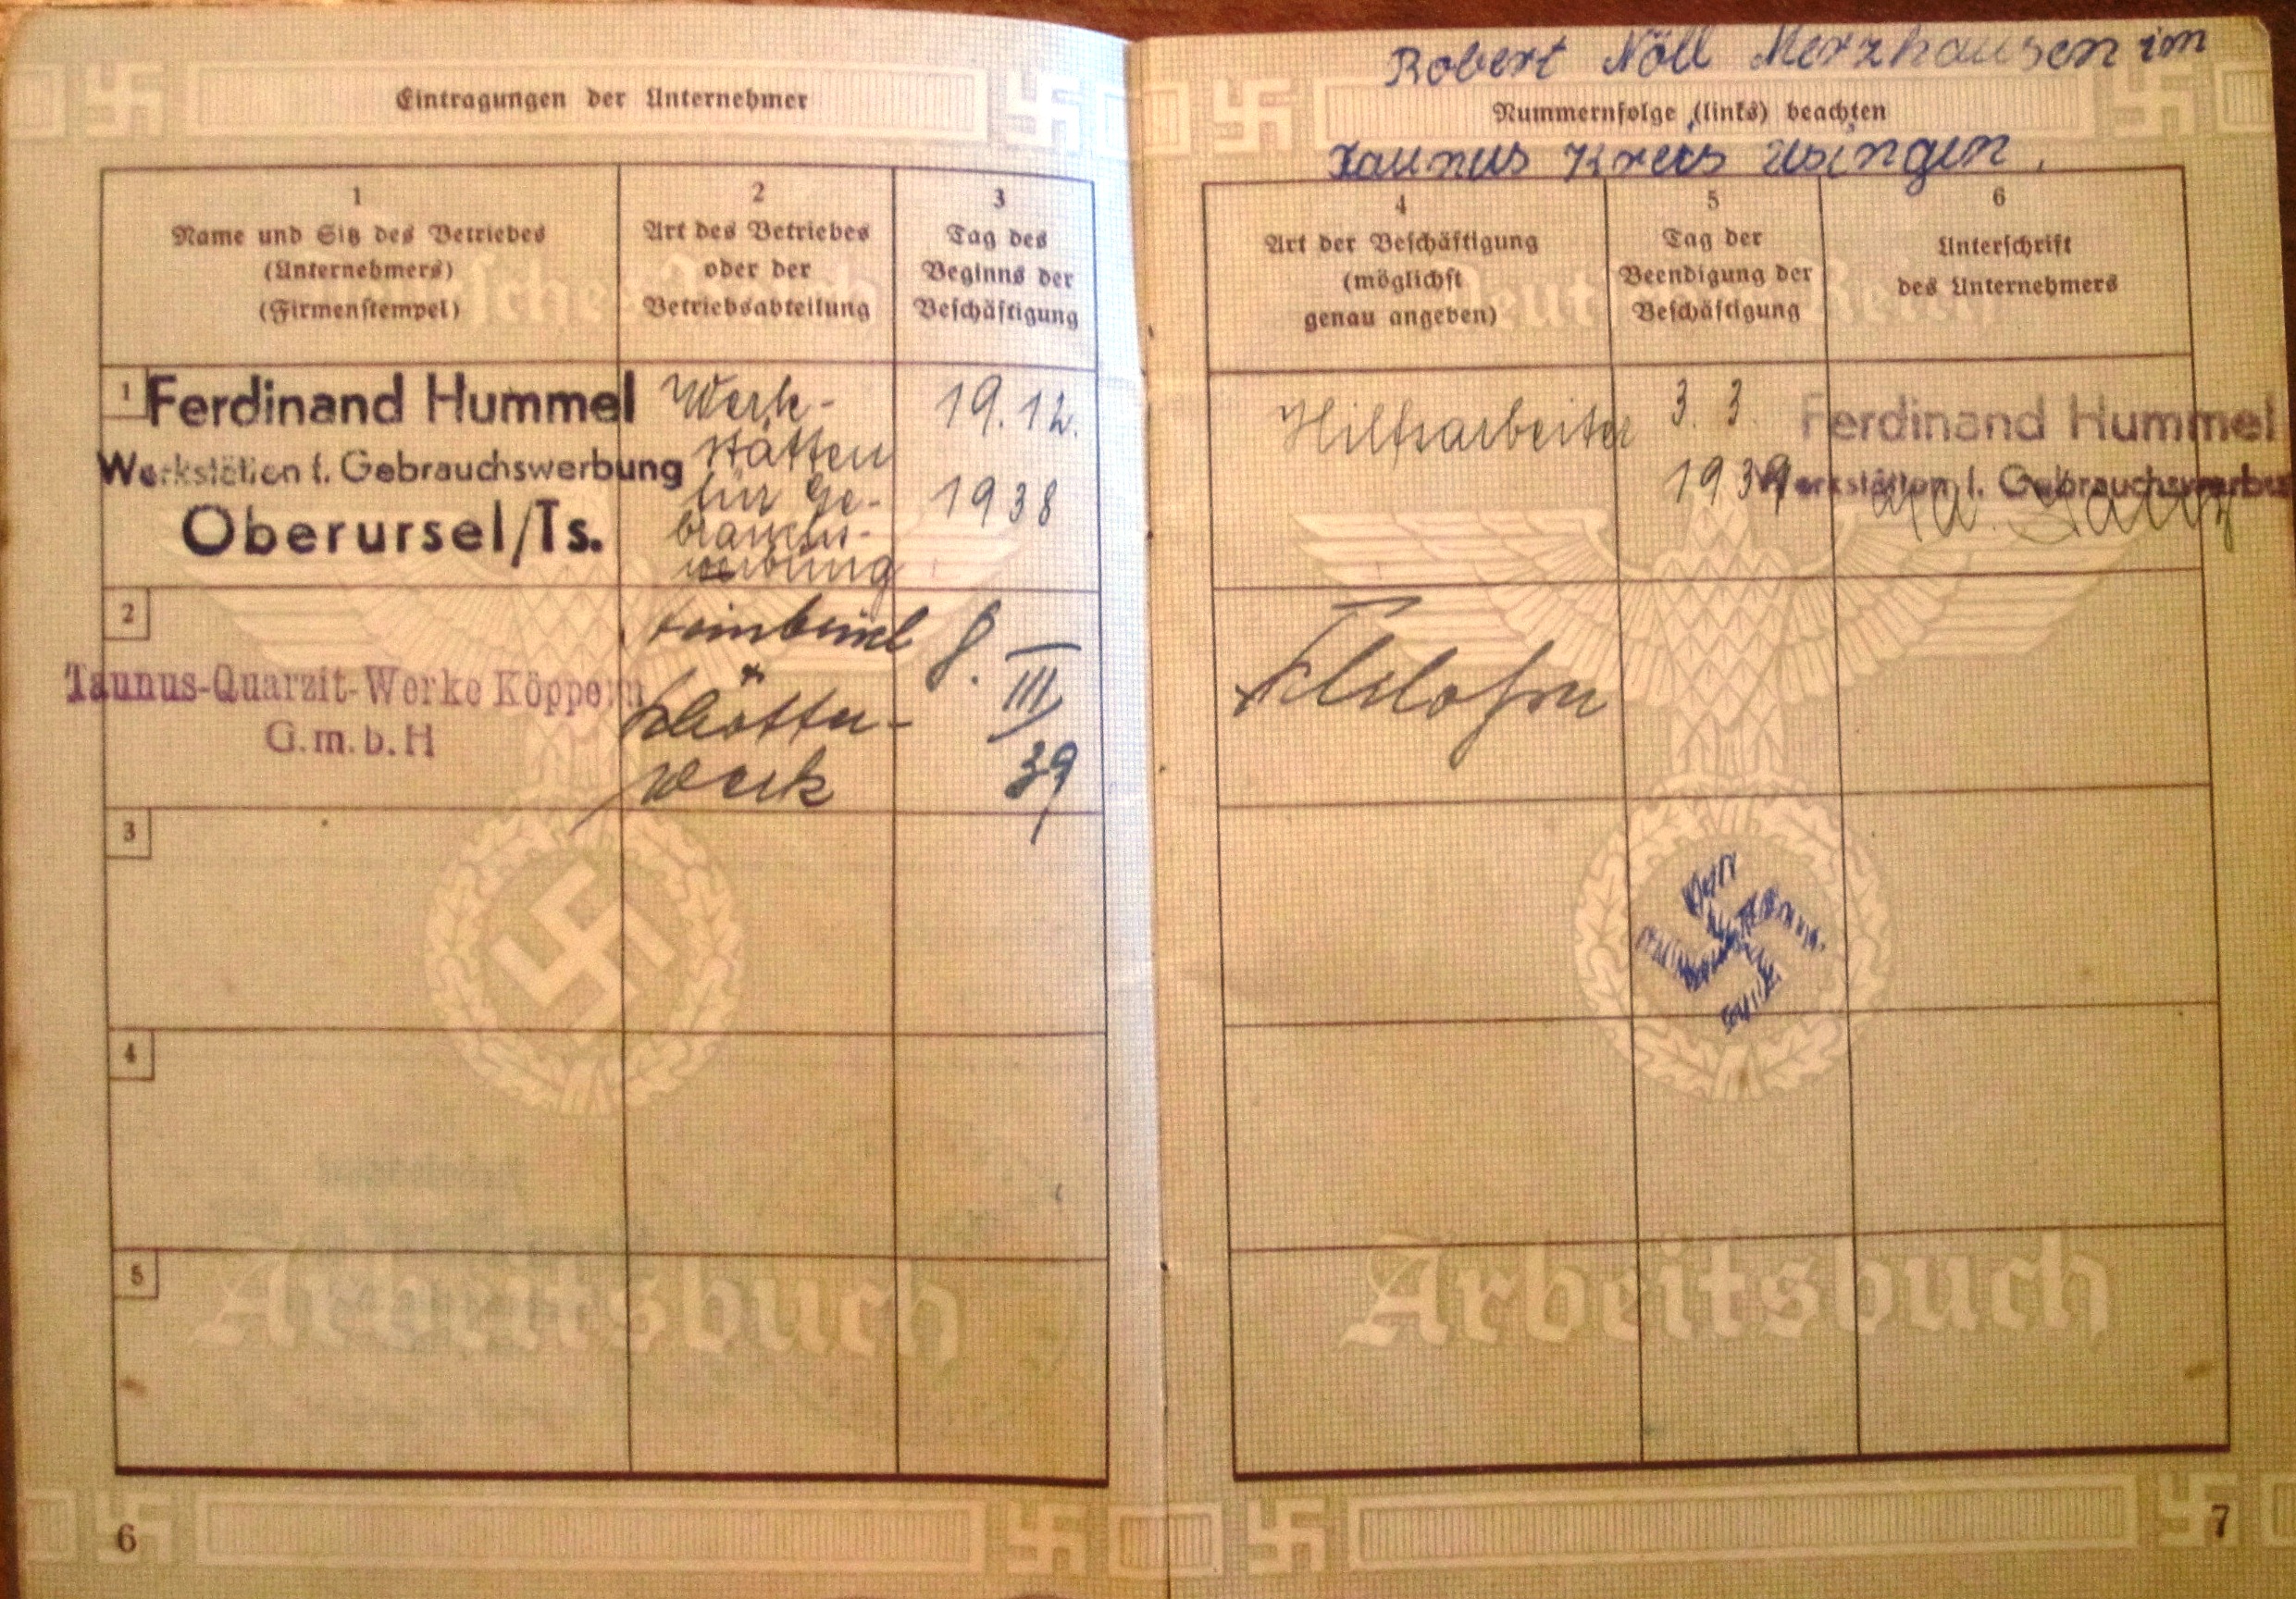 Eintragungen der Unternehmer
1
Name und Sitz des Betriebes
(Unternehmers)
(Firmenstempel)
2
Art des Betriebes
oder der
Betriebsabteilung
3
Tag des
Beginns der
Beschäftigung
1
Ferdinand Hummel
Werkstätten f. Gebrauchswerbung
Oberursel/Ts.
Werk-
stätten
für Ge-
brauchs-
werbung
19.12.
1938
2
Taunus-Quarzit-Werke Köppern
G.m.b.H
Steinbruch
Schotter-
werk
8.
III
39
3
4
5
Arbeitsbuch
6
Robert Nöll Merzhausen im
Nummernfolge (links) beachten
Taunus Kreis Usingen.
4
Art der Beschäftigung
(möglichst
genau angeben)
5
Tag der
Beendigung der
Beschäftigung
6
Unterschrift
des Unternehmers
Hilfsarbeiter
3. 3
1939
Ferdinand Hummel
Werkstätten f. Gebrauchswerbu
Arbeitsbuch
7